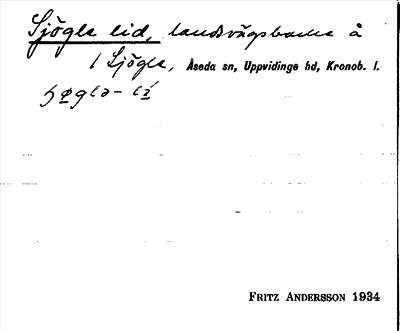 Sjögle lid, landsvägsbacke å
/ Sjögle, Åseda sn, Uppvidinge hd, Kronob. l.
FRITZ ANDERSSON 1934